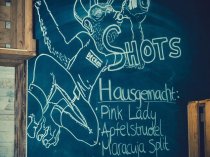 SHOTS
Hausgemacht:
Pink Lady
Apfelstrudel
Maracuja Split